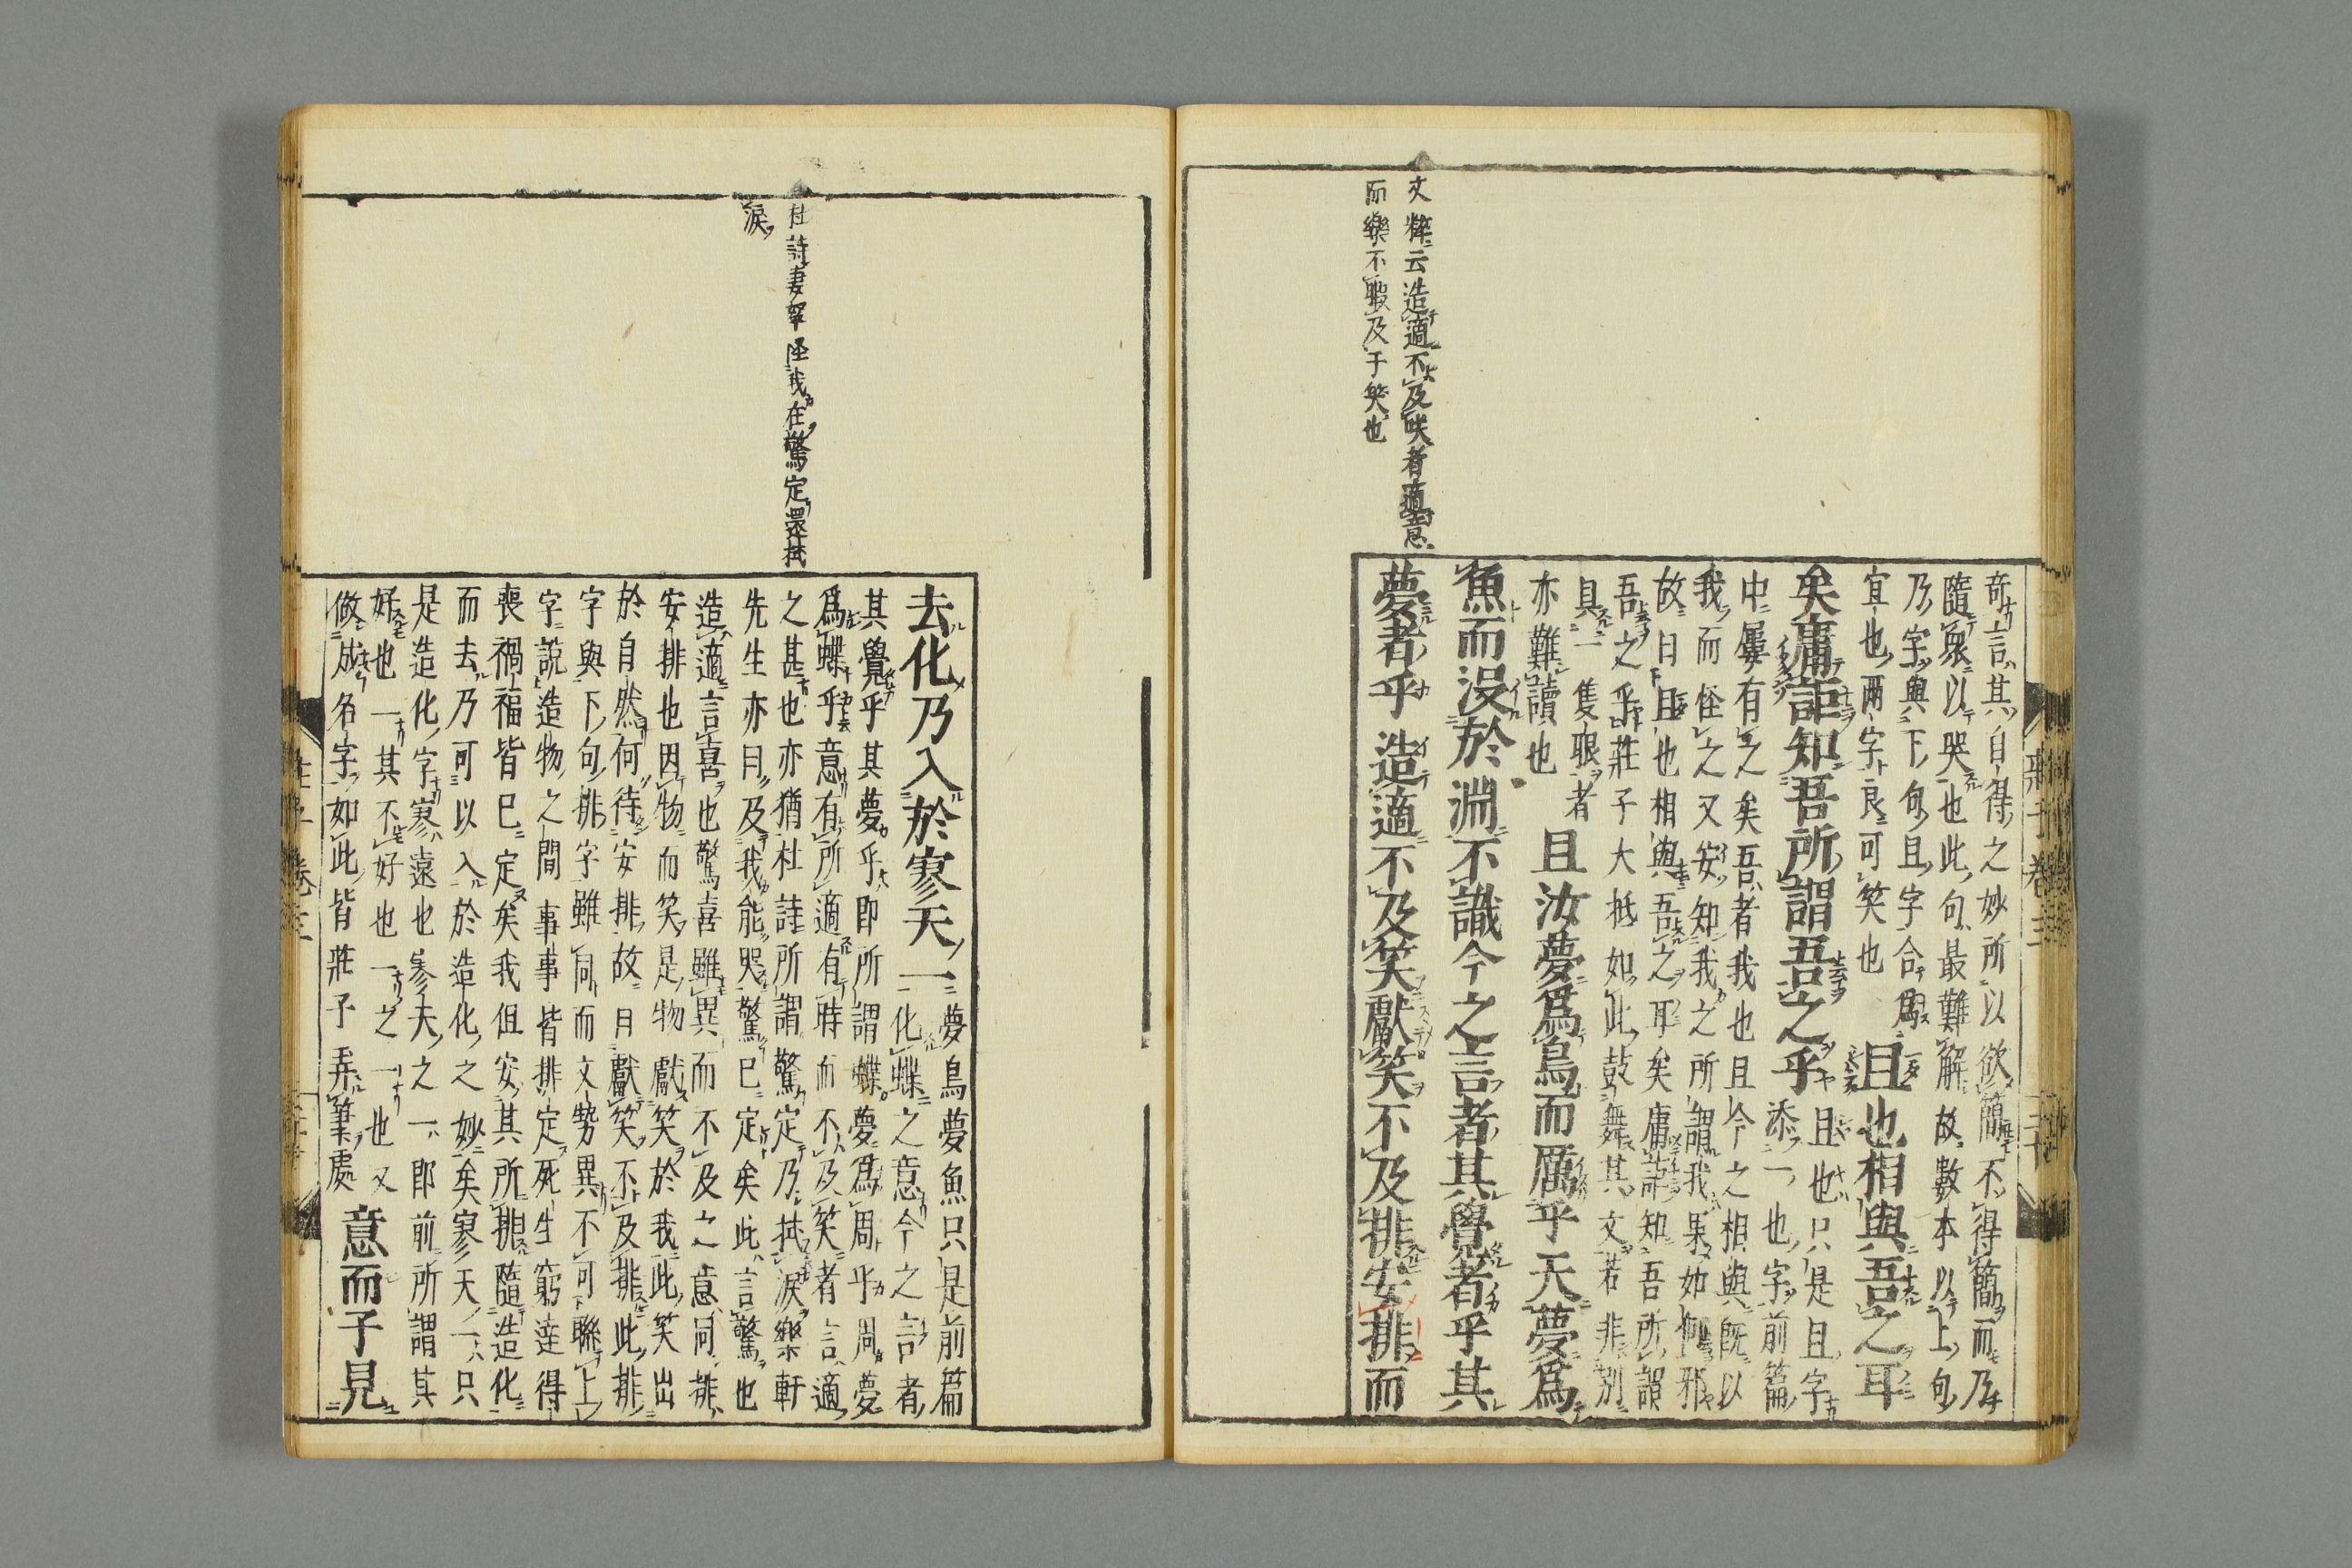 文粹云造適不及咲者適意
而樂不暇及于笑也
奇言其自得之妙所以欲簡不得簡而乃
隨衆以哭也此句最難解故數本以上句
乃字與下句且字合爲
宜也兩字良可笑也
且也相與吾之耳
矣庸詎知吾所謂吾之乎
且也只是且字
添一也字前篇
中屢有之矣吾者我也且今之相與既以
我而怪之又安知我之所謂我果如何邪
故曰且也相與吾之耳矣庸詎知吾所謂
吾之乎莊子大抵如此鼓舞其文若非別
具一隻眼者
亦難讀也
且汝夢爲鳥而厲乎天夢爲
魚而没於淵不識今之言者其覺者乎其
夢者乎造適不及笑獻笑不及排安排而
莊子卷三
杜詩妻孥怪我在驚定還拭
涙
去化乃入於寥天一
夢鳥夢魚只是前篇
化蝶之意今之言者
其覺乎其夢乎即所謂蝶夢爲周乎周夢
爲蝶乎意有所適有時而不及笑者言適
之甚也亦猶杜詩所謂驚定乃拭涙樂軒
先生亦曰及我能哭驚已定矣此言驚也
造適言喜也驚喜雖異而不及之意同排
安排也因物而笑是物獻笑於我此笑出
於自然何待安排故曰獻笑不及排此排
字與下句排字雖同而文勢異不可聯上
字說造物之間事事皆排定死生窮達得
喪禍福皆已定矣我但安其所排隨造化
而去乃可以入於造化之妙矣寥天一只
是造化字寥遠也寥天之一即前所謂其
好也一其不好也一之一也又
做成名字如此皆莊子弄筆處
意而子見
莊子 卷三